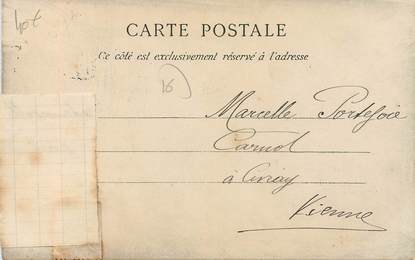 CARTE POSTALE
Ce côté est exclusivement réservé à l'adresse
16
Marcelle Portejoie
Carnot
à Civray
Vienne